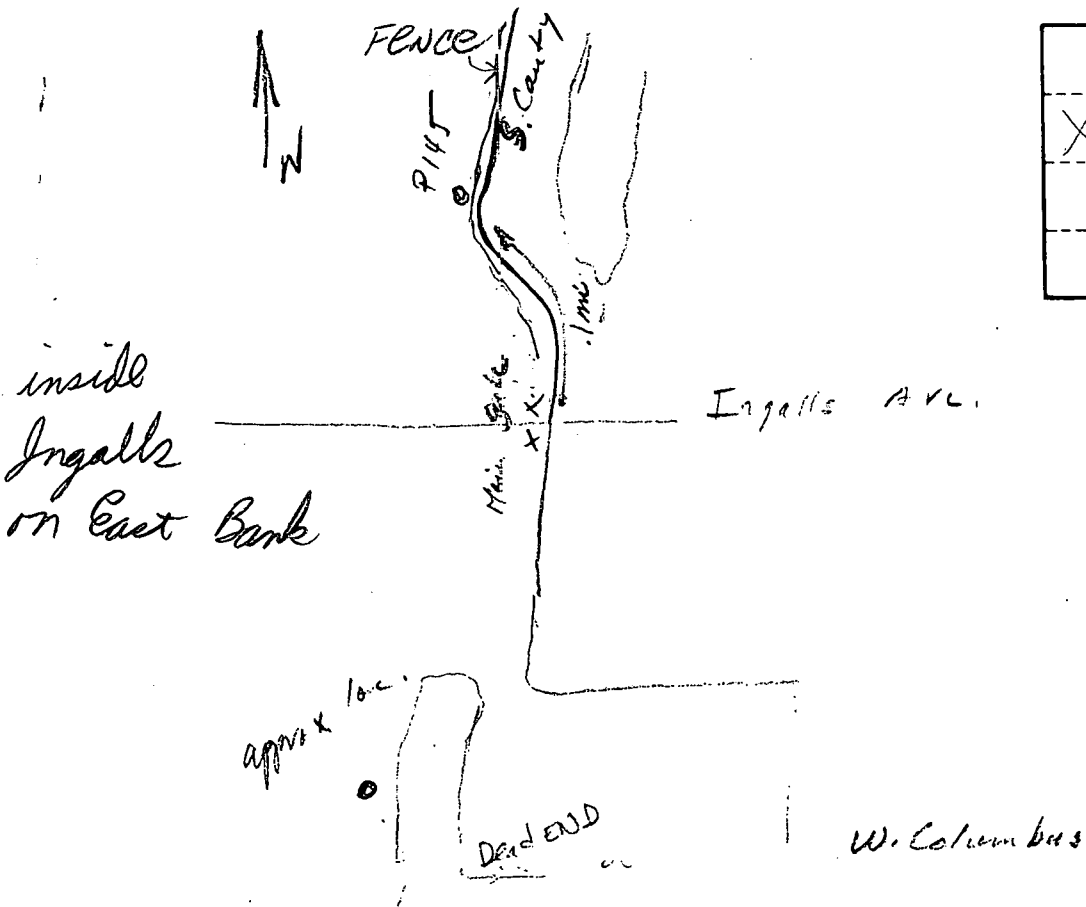 FENCE
S. Canty
N
P145
.1 mi
inside
Ingalls
on East Bank
Main
x x
x
Ingalls Ave.
approx loc.
Dead END
W. Columbus
X